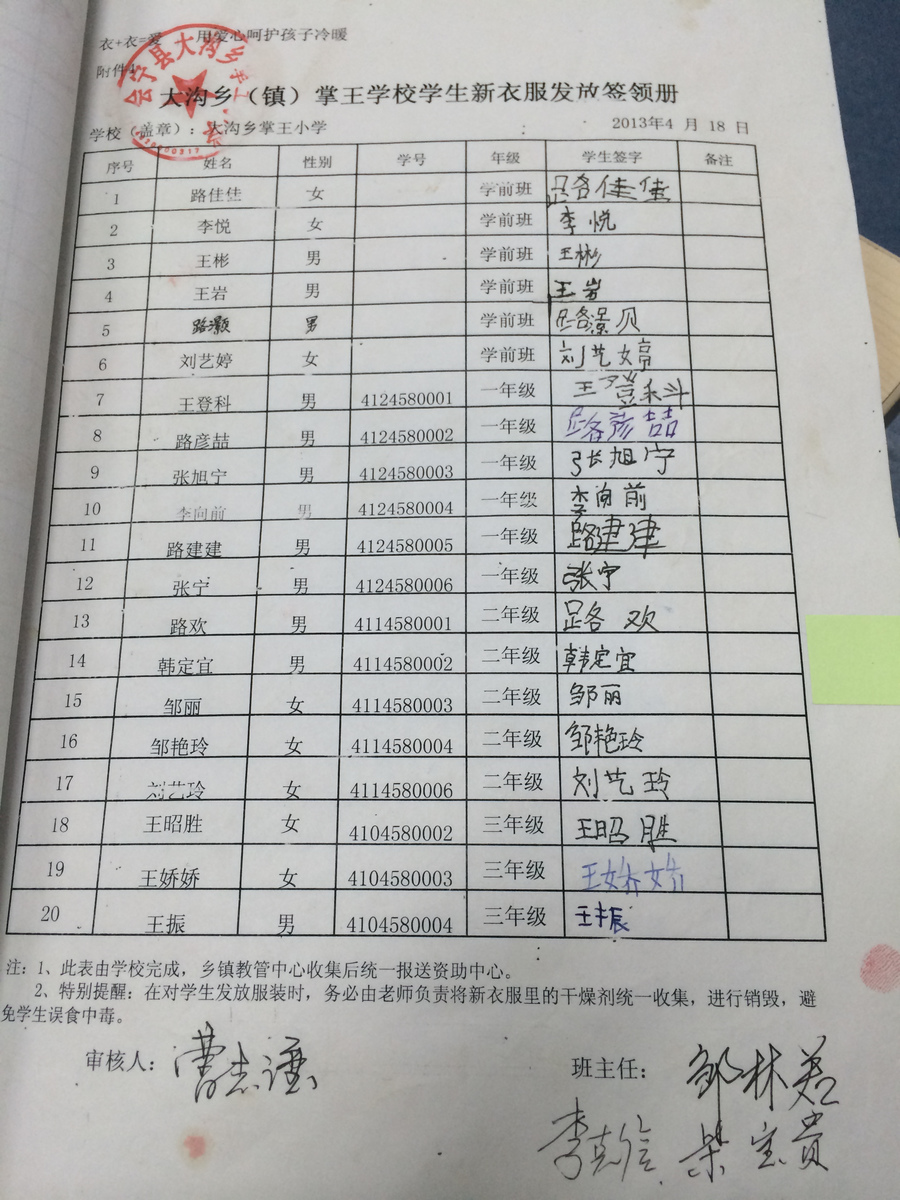 衣+衣=爱 用爱心呵护孩子冷暖
附件4
大沟乡（镇）掌王学校学生新衣服发放签领册
学校（盖章）：大沟乡掌王小学 2013年4 月 18 日
序号 姓名 性别 学号 年级 学生签字 备注
1 路佳佳 女 学前班 路佳佳
2 李悦 女 学前班 李悦
3 王彬 男 学前班 王彬
4 王岩 男 学前班 王岩
5 路灏 男 学前班 路景贝
6 刘艺婷 女 学前班 刘艺婷
7 王登科 男 4124580001 一年级 王登科
8 路彦喆 男 4124580002 一年级 路彦喆
9 张旭宁 男 4124580003 一年级 张旭宁
10 李向前 男 4124580004 一年级 李向前
11 路建建 男 4124580005 一年级 路建建
12 张宁 男 4124580006 一年级 张宁
13 路欢 男 4114580001 二年级 路欢
14 韩定宜 男 4114580002 二年级 韩定宜
15 邹丽 女 4114580003 二年级 邹丽
16 邹艳玲 女 4114580004 二年级 邹艳玲
17 刘艺玲 女 4114580006 二年级 刘艺玲
18 王昭胜 女 4104580002 三年级 王昭胜
19 王娇娇 女 4104580003 三年级 王娇娇
20 王振 男 4104580004 三年级 王振
注：1、此表由学校完成，乡镇教管中心收集后统一报送资助中心。
2、特别提醒：在对学生发放服装时，务必由老师负责将新衣服里的干燥剂统一收集，进行销毁，避
免学生误食中毒。
审核人： 班主任： 邹林君
柴宝贵